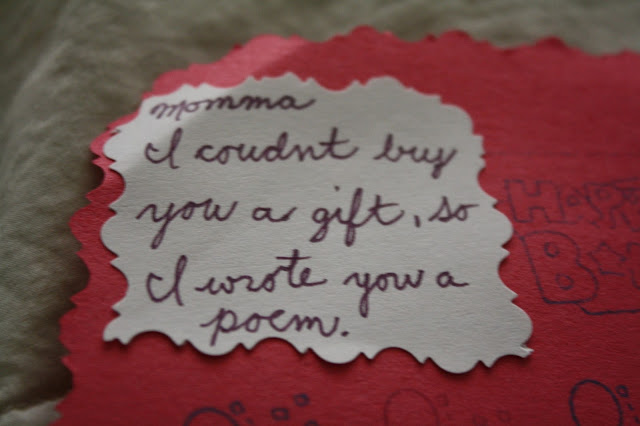 momma
I coudnt buy
you a gift, so
I wrote you a
poem.